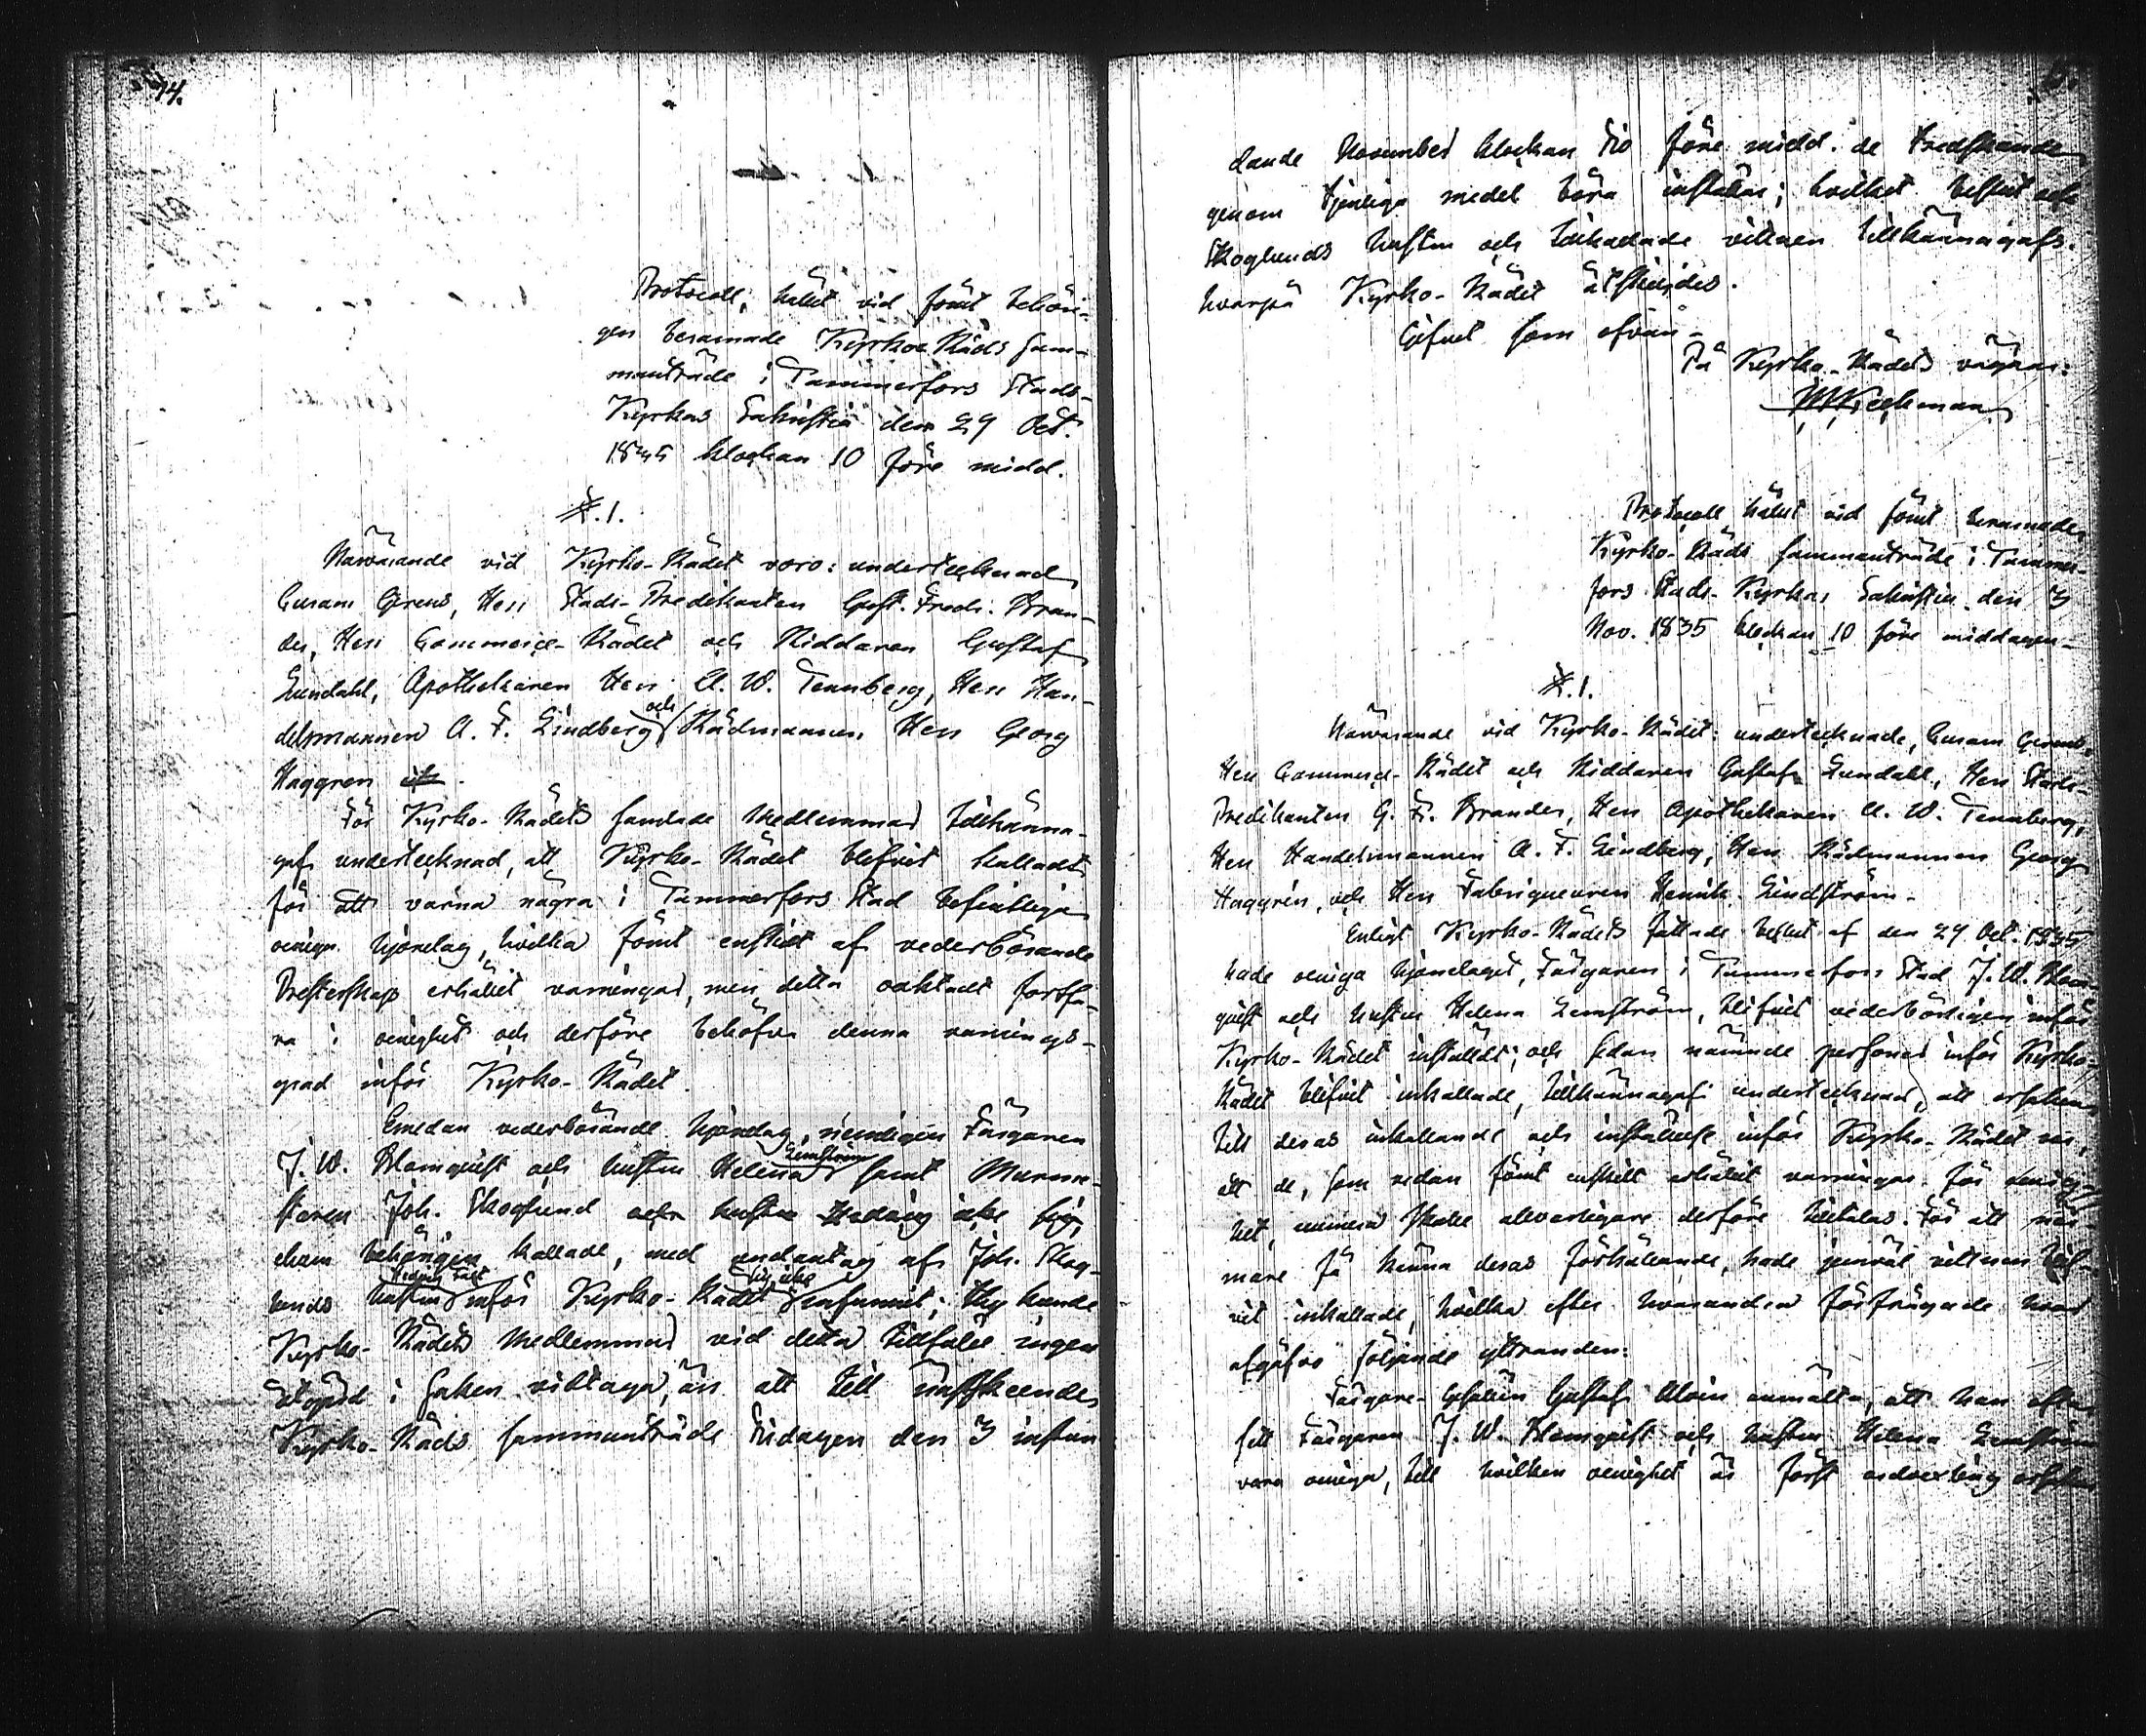 14.
Protocoll, hållit vid förut behöri-
gen beramade Kyrkoe Råds sam-
manträde i Tammerfors Stads
Kyrkas Sakristia den 29 Oct.
1835 klockan 10 före midd.
§.1.
Närvarande vid Kyrko-Rådet voro: undertecknad
Curam Gerens, Herr Stads-Predikanten Gust. Fredr. Bran-
der, Herr Commerce-Rådet och Riddaren Gustaf
Sundahl, Apothekaren Herr A. W. Tennberg, Herr Han-
delsmannen A. F. Lindberg och Rådmannen Herr Georg
Haggren
För Kyrko-Rådets samlade Medlemmar tillkänna-
gaf undertecknad, att Kyrko-Rådet blifvit kalladt
för att varna några i Tammerfors Stad befintliga
oeniga hjonelag, hvilka förut enskildt af vederbörande
Presterskap erhållit varningar, men detta oaktadt fortfa-
ra i oenighet och derföre behöfva denna varnings-
grad inför Kyrko-Rådet.
Emedan vederbörande hjonelag, nemligen Färgaren
J. W. Blomquist och hustru Helena Lemström samt Murme-
staren Joh. Skoglund och hustru Hedvig icke sig,
ehuru behörigen kallade, med undantag af Joh. Skog-
lunds hustru inför Kyrko-Rådet sig icke infunnit; Ty kunde
Kyrko-Rådets Medlemmar vid detta tillfälle ingen
åtgärd i saken vidtaga, än att till nästskeende
Kyrko-Råds sammanträde Tisdagen den 3 instun
dande November klockan Tio före midd. de Tredskande
genom tjenliga medel böra inställas; hvilket beslut och
Skoglunds hustru och tillkallade vittnen tillkännagafs.
hvarpå Kyrko-Rådet åtskiljdes.
Gifvet som ofvan
På Kyrko-Rådets vägnar:
Protocoll hållit vid förut beramade
Kyrko-Råds sammanträde i Tammer-
fors Stads-Kyrkas Sakristia den 3
Nov. 1835 klockan 10 före middagen
§.1.
Närvarande vid Kyrko-Rådet: undertecknade, Curam Gerens,
Herr Commerce-Rådet och Riddaren Gustaf Sundahl, Herr Stads-
Predikanten G. F. Brander, Herr Apothekaren A. W. Tennberg,
Herr Handelsmannen A. F. Lindberg, Herr Rådmannen Georg
Haggrén, och Herr Fabriqueuren Henrik Lindström.
Enligt Kyrko-Rådets fattade beslut af den 29 Oct. 1835
hade oeniga hjonelaget, Färgaren i Tammerfors Stad J. W. Blom-
quist och hustru Helena Lemström, blifvit vederbörligen inför
Kyrko-Rådet instälde; och sedan nämnde personer inför Kyrko-
Rådet blifvit inkallade, tillkännagaf undertecknad, att orsaken
till deras inkallande och inställelse inför Kyrko-Rådet var,
att de, som redan förut enskilt erhållit varningar för oenig-
het, numera skulle allvarligare derföre tilltalas. För att när-
mare få känna deras förhållande, hade jemväl vittnen blif-
vit inkallade, hvilka efter hvarandra förfrågade hvar
afgåfvo följande yttranden:
Färgare-Gesällen Gustaf anmälte, att han ofta
sett Färgaren J. W. Blomquist och hustru Helena Lemström
vara oeniga, till hvilken oenighet är först